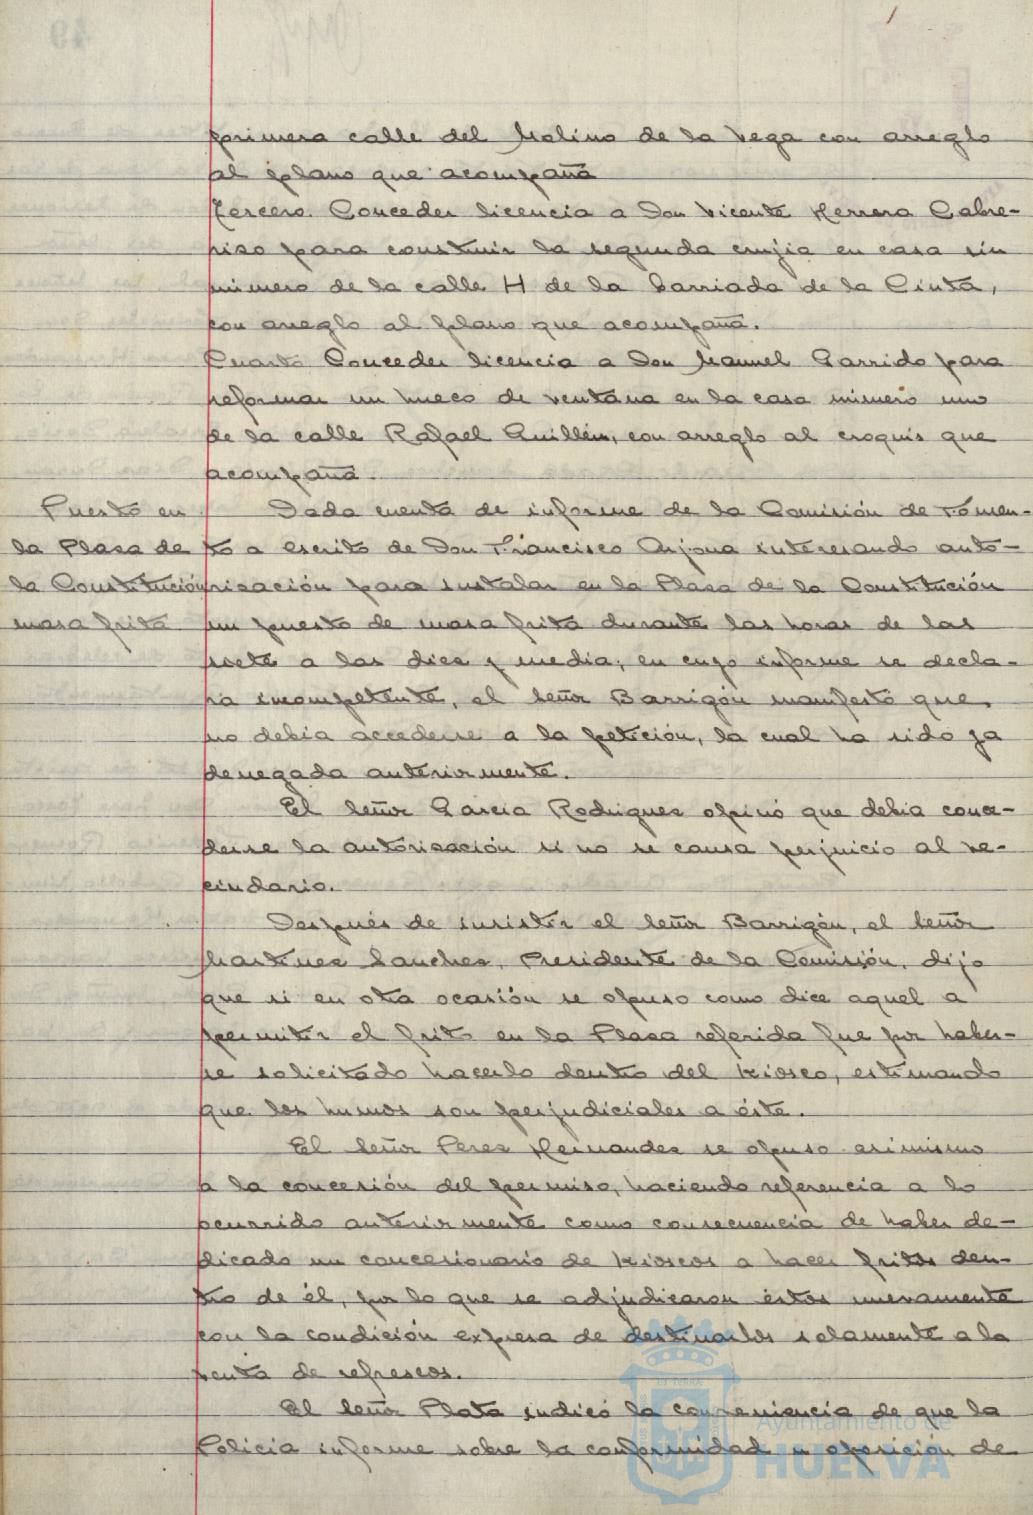 primera calle del Molino de la Vega con arreglo
al plano que acompaña
Tercero. Conceder licencia a Don Vicente Herrera Cabre-
riso para construir la segunda crujia en casa sin
número de la calle H de la barriada de la Cinta,
con arreglo al plano que acompaña.
Cuarto Conceder licencia a Don Manuel Garrido para
reformar un hueco de ventana en la casa número uno
de la calle Rafael Guillén, con arreglo al croquis que
acompaña.
Puesto en
la Plaza de
la Constitución
masa frita
Dada cuenta de informe de la Comisión de Fomen-
to a escrito de Don Francisco Arjona interesando auto-
rización para instalar en la Plaza de la Constitución
un puesto de masa frita durante las horas de las
siete a las diez y media, en cuyo informe se decla-
ra incompetente, el señor Barrigón manifestó que
no debia accederse a la petición, la cual ha sido ya
denegada anteriormente.
El señor Garcia Rodriguez opinó que debia conce-
derse la autorización si no se causa perjuicio al ve-
cindario.
Después de insistir el señor Barrigón, el señor
Martinez Sanchez, Presidente de la Comisión, dijo
que si en otra ocasión se opuso como dice aquel a
permitir el frito en la Plaza referida fue por haber-
se solicitado hacerlo dentro del kiosco, estimando
que los humos son perjudiciales a éste.
El señor Perez Hernandez se opuso asimismo
a la concesión del permiso, haciendo referencia a lo
ocurrido anteriormente como consecuencia de haber de-
dicado un concesionario de kioscos a hacer fritos den-
tro de él, por lo que se adjudicaron éstos nuevamente
con la condición expresa de destinarlos solamente a la
venta de refrescos.
El señor Plata indicó la conveniencia de que la
Policia informe sobre la conformidad u oposición de
Ayuntamiento de
HUELVA